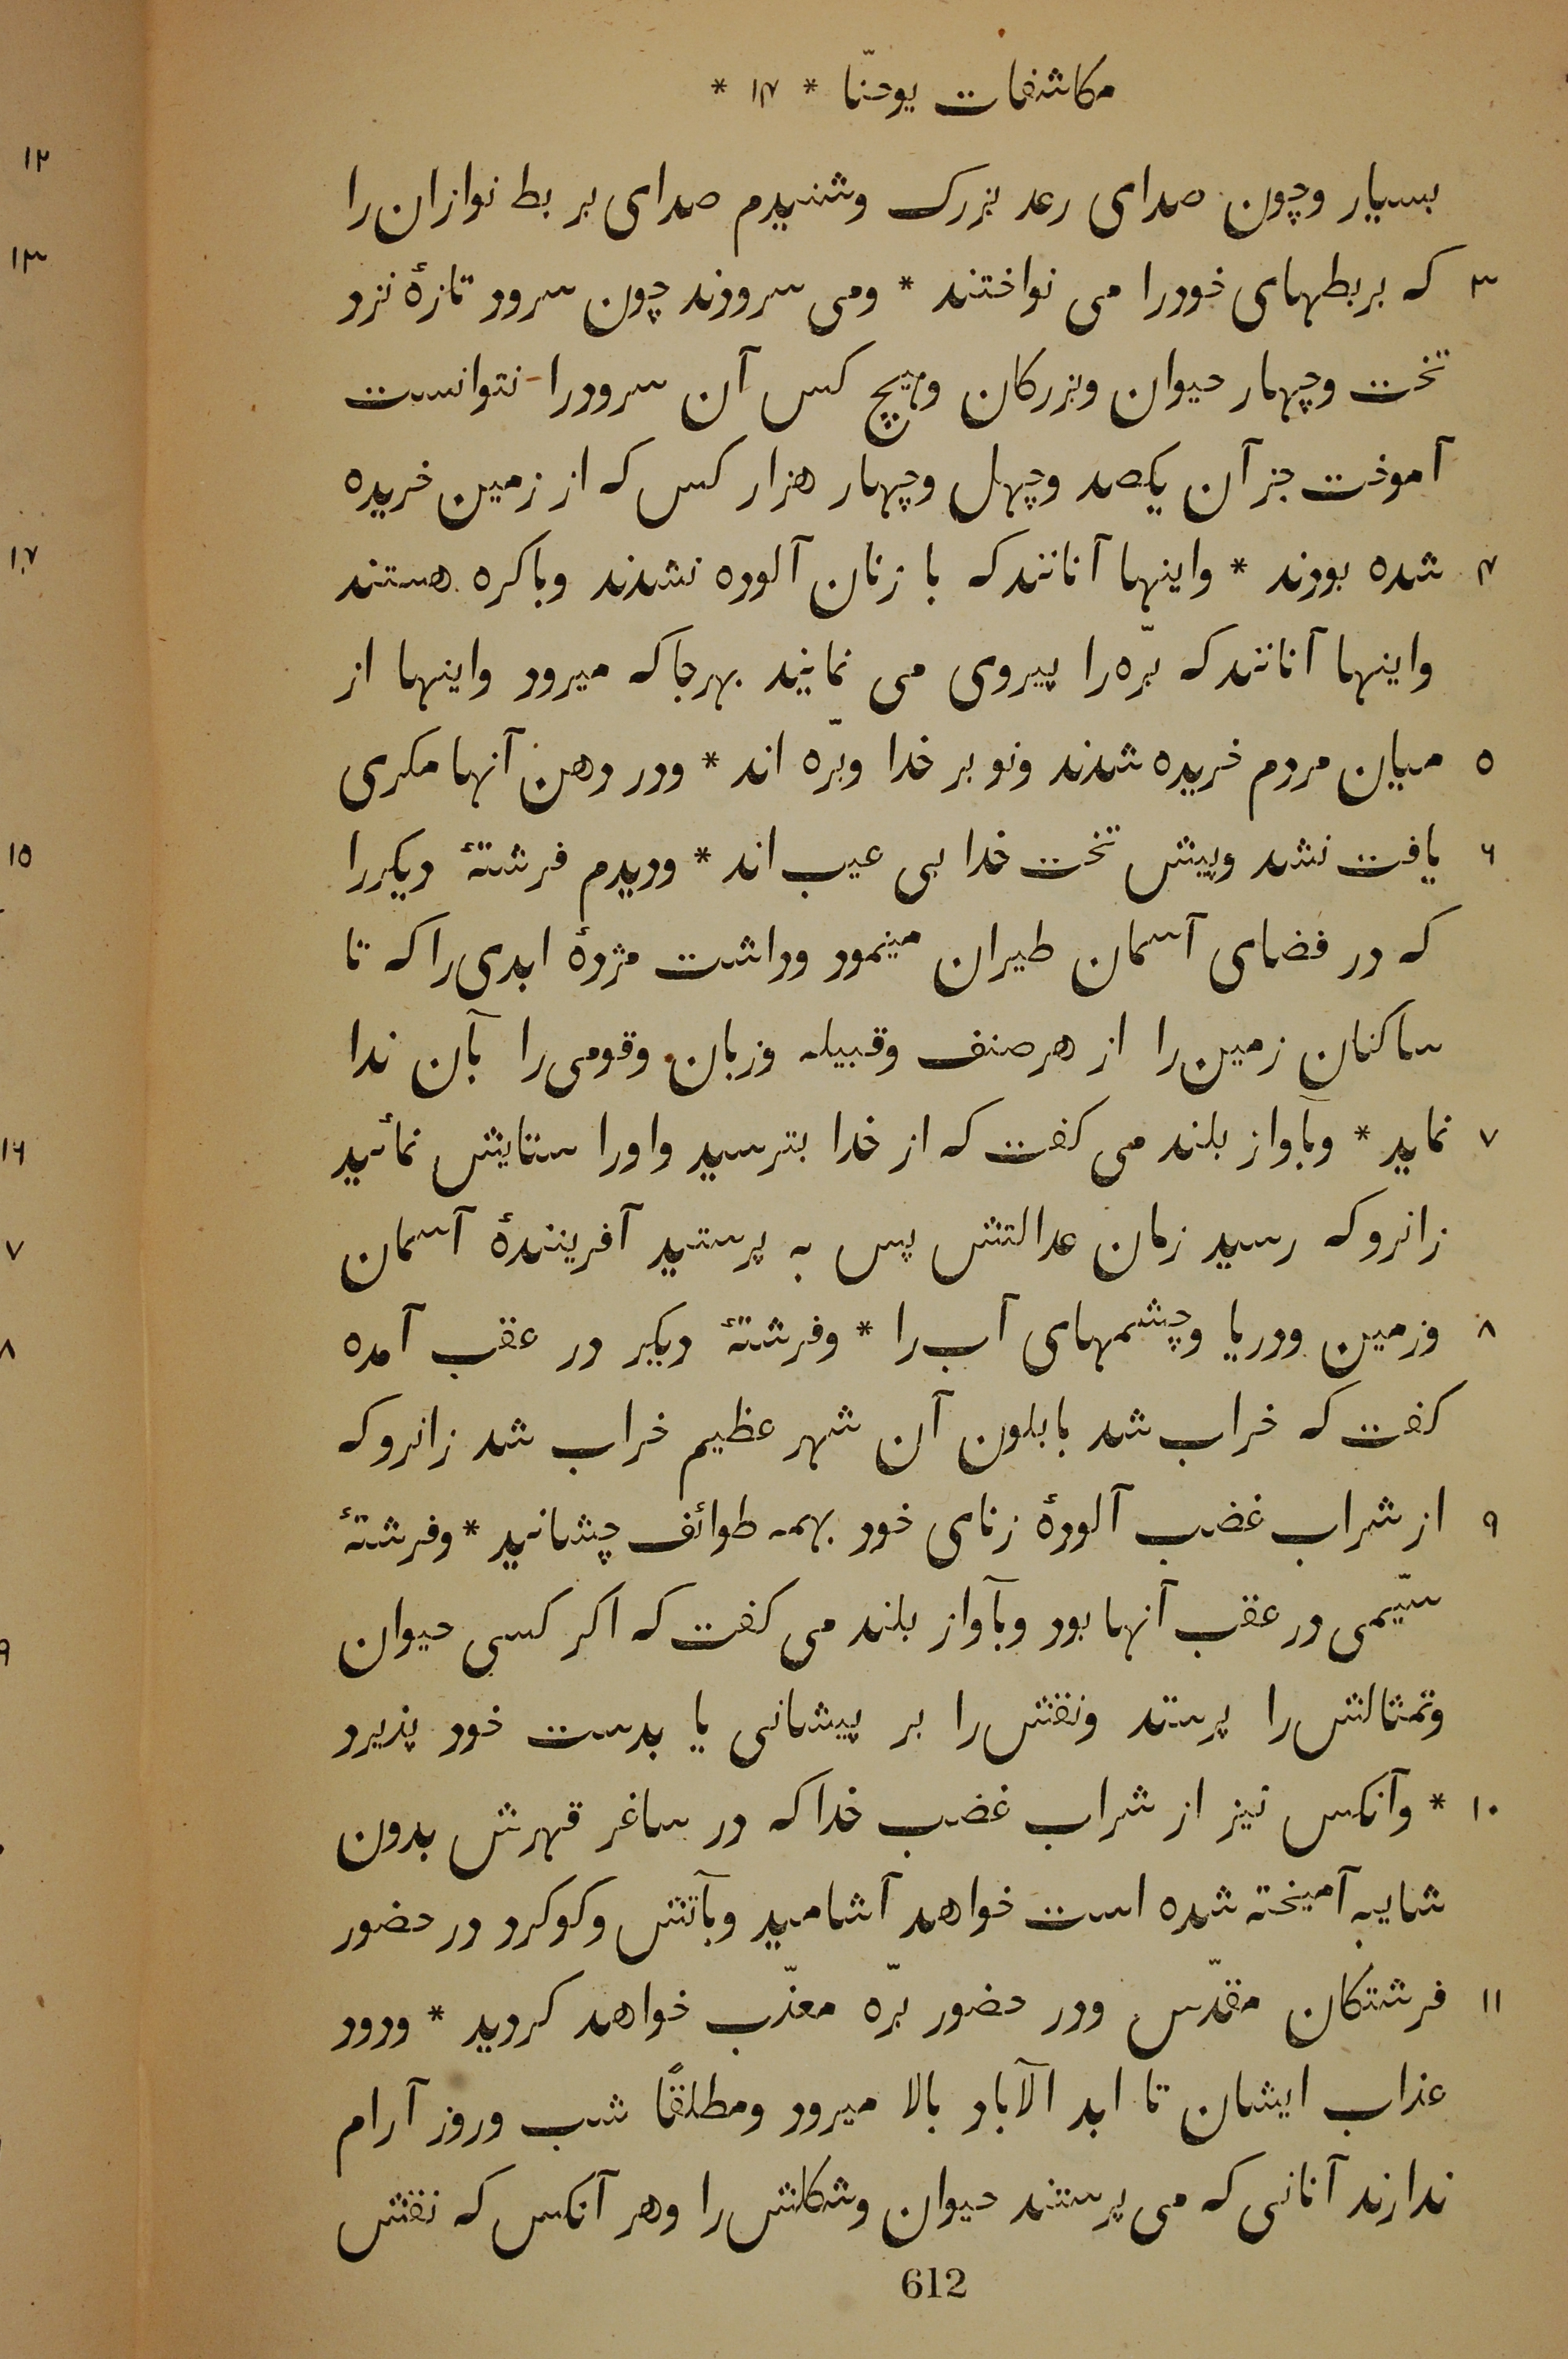 مکاشفات یوحنّا * ۱۴ *
بسیار وچون صدای رعد بزرک وشنیدم صدای بر بط نوازان را
۳ که بربطهای خودرا می نواختند * ومی سرودند چون سرود تازهٔ نزد
تخت وچهار حیوان وبزرکان وهیچ کس آن سرودرا نتوانست
آموخت جز آن یکصد وچهل وچهار هزار کس که از زمین خریده
۴ شده بودند * واینها آنانند که با زنان آلوده نشدند وباکره هستند
واینها آنانند که برّه را پیروی می نمایند بهرجا که میرود واینها از
۵ میان مردم خریده شدند ونو بر خدا وبرّه اند * ودر دهن آنها مکری
۶ یافت نشد وپیش تخت خدا بی عیب اند * ودیدم فرشتهٔ دیکررا
که در فضای آسمان طیران مینمود وداشت مژدهٔ ابدی را که تا
ساکنان زمین را از هر صنف وقبیله وزبان وقومی را بآن ندا
۷ نماید * وبآواز بلند می کفت که از خدا بترسید واورا ستایش نمائید
زانرو که رسید زمان عدالتش پس به پرستید آفرینندهٔ آسمان
۸ وزمین ودریا وچشمهای آب را * وفرشتهٔ دیکر در عقب آمده
کفت که خراب شد بابلون آن شهر عظیم خراب شد زانرو که
۹ از شراب غضب آلودهٔ زنای خود بهمه طوائف چشانید * وفرشتهٔ
سیّمی در عقب آنها بود وبآواز بلند می کفت که اکر کسی حیوان
وتمثالش را پرستد ونقش را بر پیشانی یا بدست خود پذیرد
۱۰ * وآنکس نیز از شراب غضب خدا که در ساغر قهرش بدون
شایبه آمیخته شده است خواهد آشامید وبآتش وکوکرد در حضور
۱۱ فرشتکان مقدّس ودر حضور برّه معذّب خواهد کردید * ودود
عذاب ایشان تا ابد الآباد بالا میرود ومطلقًا شب وروز آرام
ندارند آنانی که می پرستند حیوان وشکلش را وهر آنکس که نقش
612
۱۲
۱۳
۱۴
۱۵
۱۶
۷
۸
۹